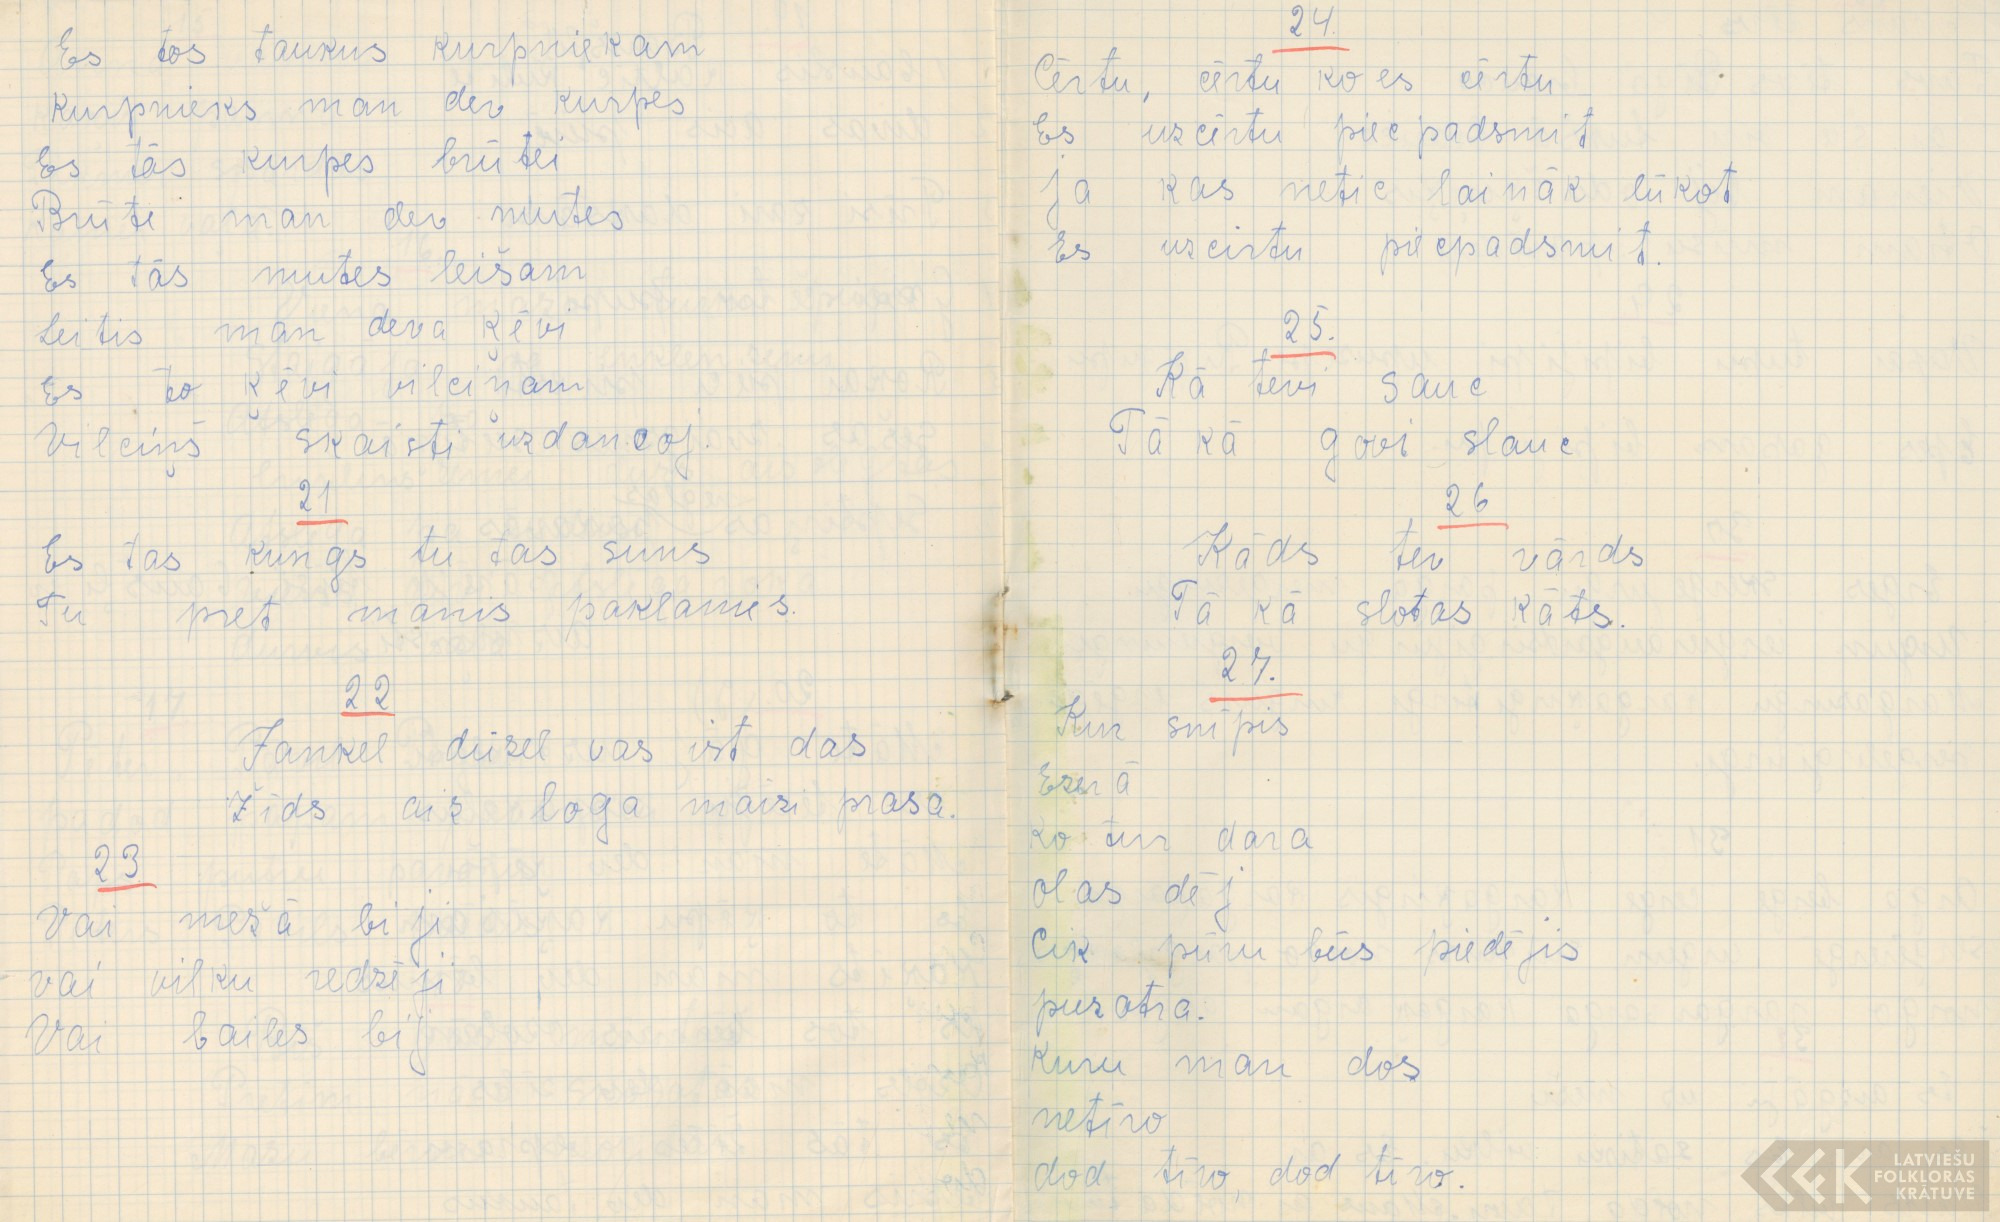 Es tos taukus kurpniekam
kurpnieks man dev kurpes
Es tās kurpes brūtei
Brūte man dev mutes
Es tās mutes leišam
Leitis man deva ķēvi
Es to ķēvi vilciņam
Vilciņš skaisti uzdancoj.
21
Es tas kungs tu tas suns
Tu pret manis paklanies.
22
Jankel dūzel vas ist das
Žīds aiz loga maizi prasa.
23
Vai mežā biji
vai vilku redzēji
Vai bailes bij
24.
Cērtu, cērtu ko es cērtu
Es uzcērtu piecpadsmit
ja kas netic lai nāk lūkot
Es uzcirtu piecpadsmit.
25.
Kā tevi sauc
Tā kā govi slauc
26
Kāds tev vārds
Tā kā slotas kāts.
27.
Kur snīpis
Ezerā
ko tur dara
olas dēj
Cik pūru būs piedējis
pusotra.
Kuru man dos
netīro
dod tīro, dod tīro.
LATVIEŠU
FOLKLORAS
KRĀTUVE